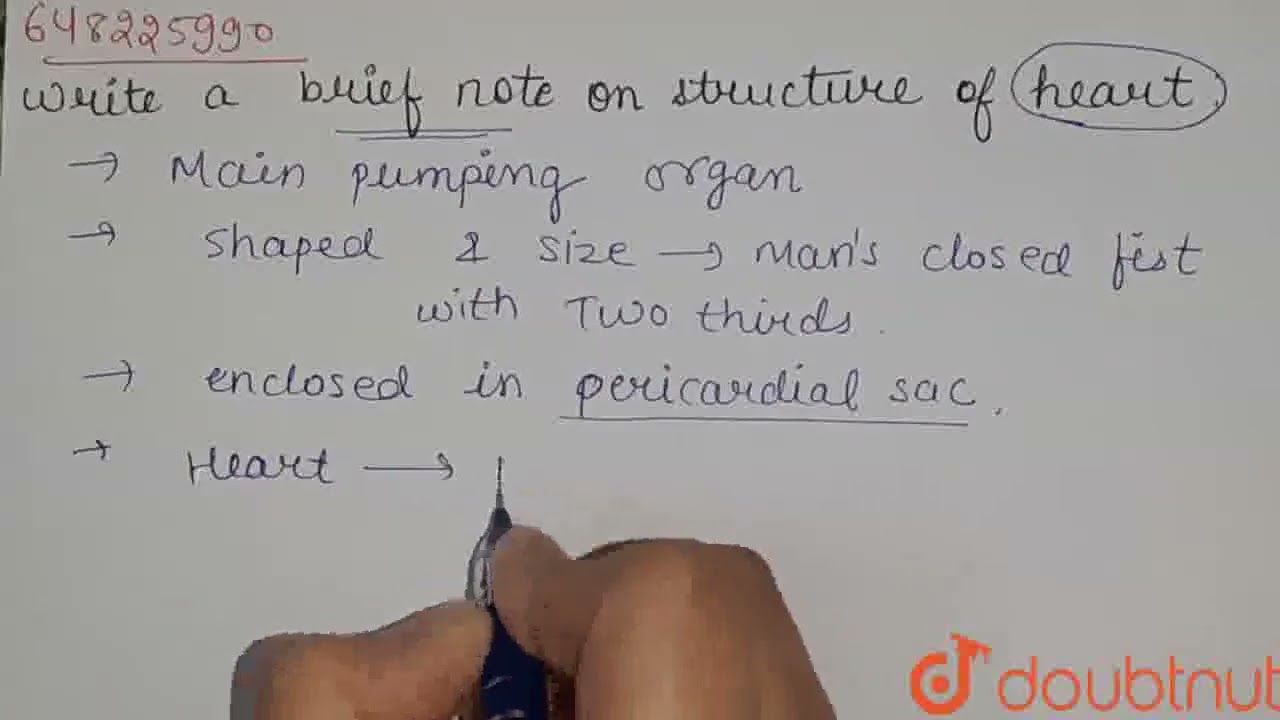 648225990
Write a brief note on structure of heart.
→ Main pumping organ
→ Shaped & size → Man's closed fist
with Two thirds.
→ enclosed in pericardial sac.
→ Heart →
doubtnut